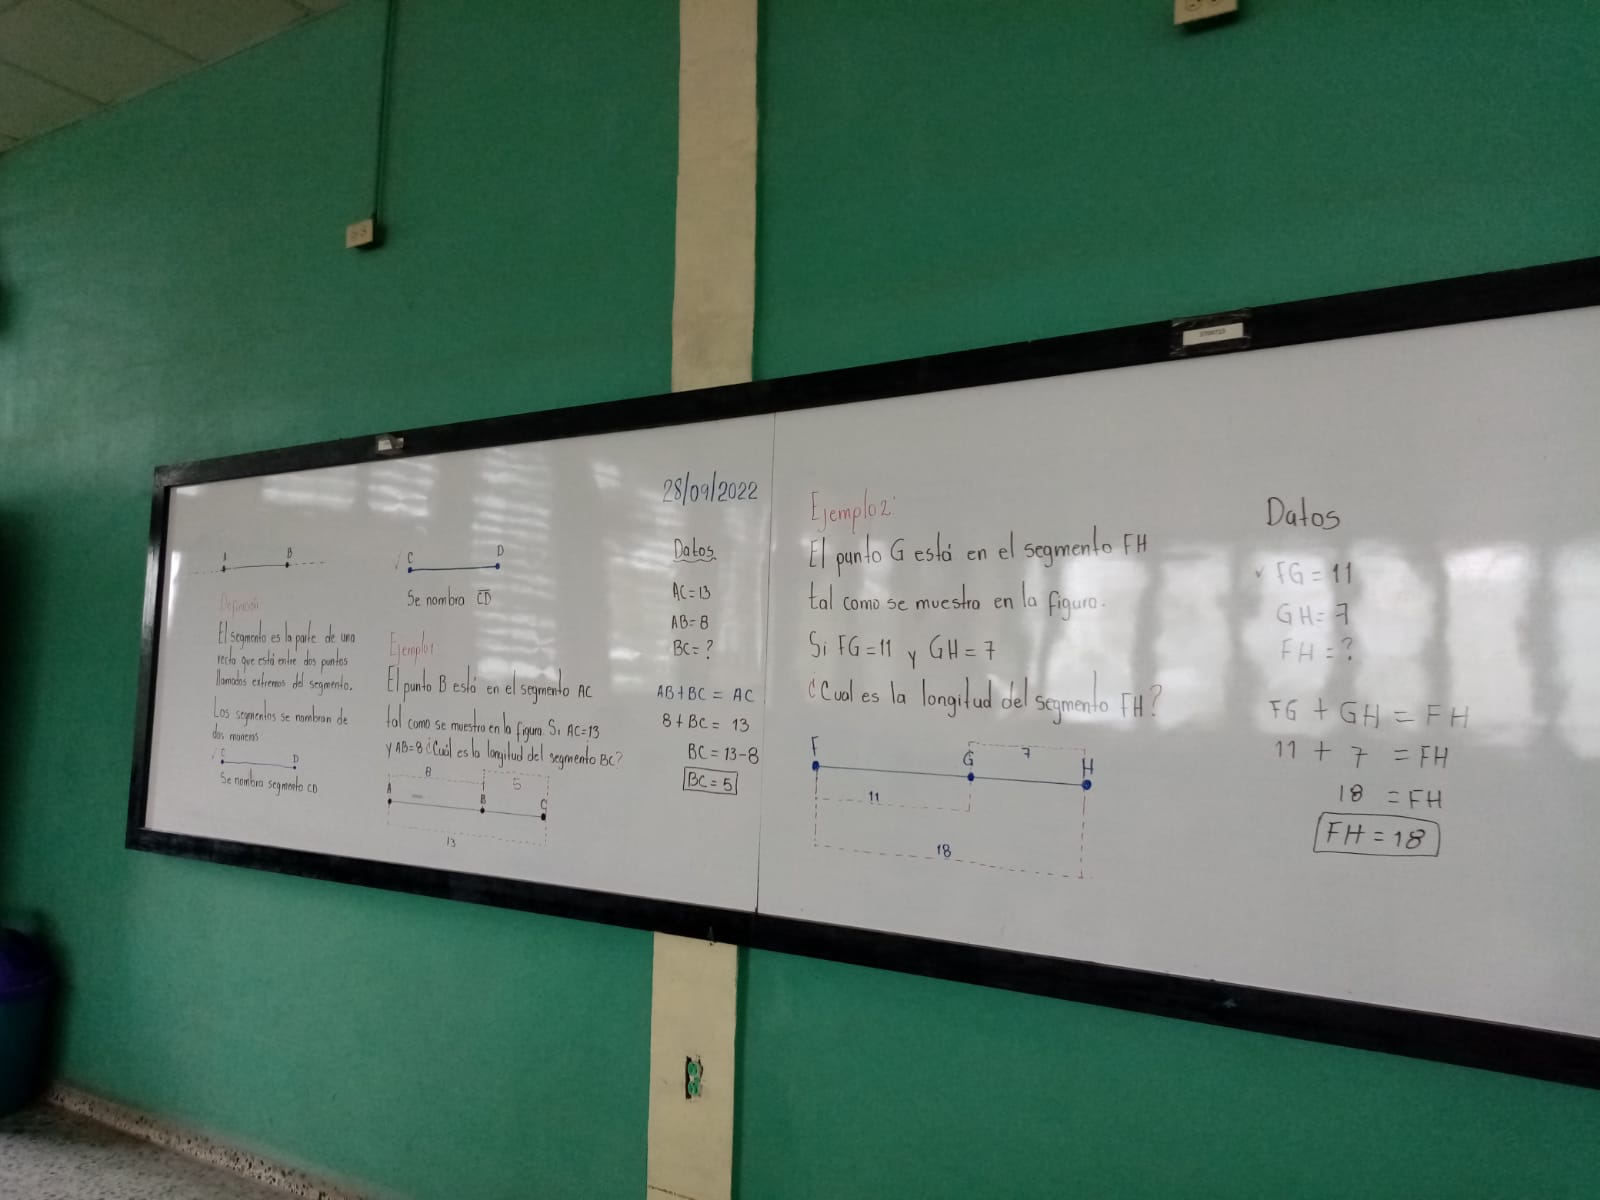 28/09/2022
A B
Definición
El segmento es la parte de una
recta que está entre dos puntos
llamados extremos del segmento.
Los segmentos se nombran de
dos maneras
C D
Se nombra segmento CD
C D
Se nombra C̅D̅
Ejemplo1
El punto B está en el segmento AC
tal como se muestra en la figura. Si AC=13
y AB=8 ¿Cuál es la longitud del segmento BC?
8 5
A B C
13
Datos
AC=13
AB=8
BC=?
AB+BC = AC
8+BC = 13
BC = 13-8
BC = 5
Ejemplo2:
El punto G está en el segmento FH
tal como se muestra en la figura.
Si FG=11 y GH=7
¿Cual es la longitud del segmento FH?
F G 7 H
11
18
Datos
FG = 11
GH= 7
FH = ?
FG + GH = FH
11 + 7 = FH
18 = FH
FH = 18